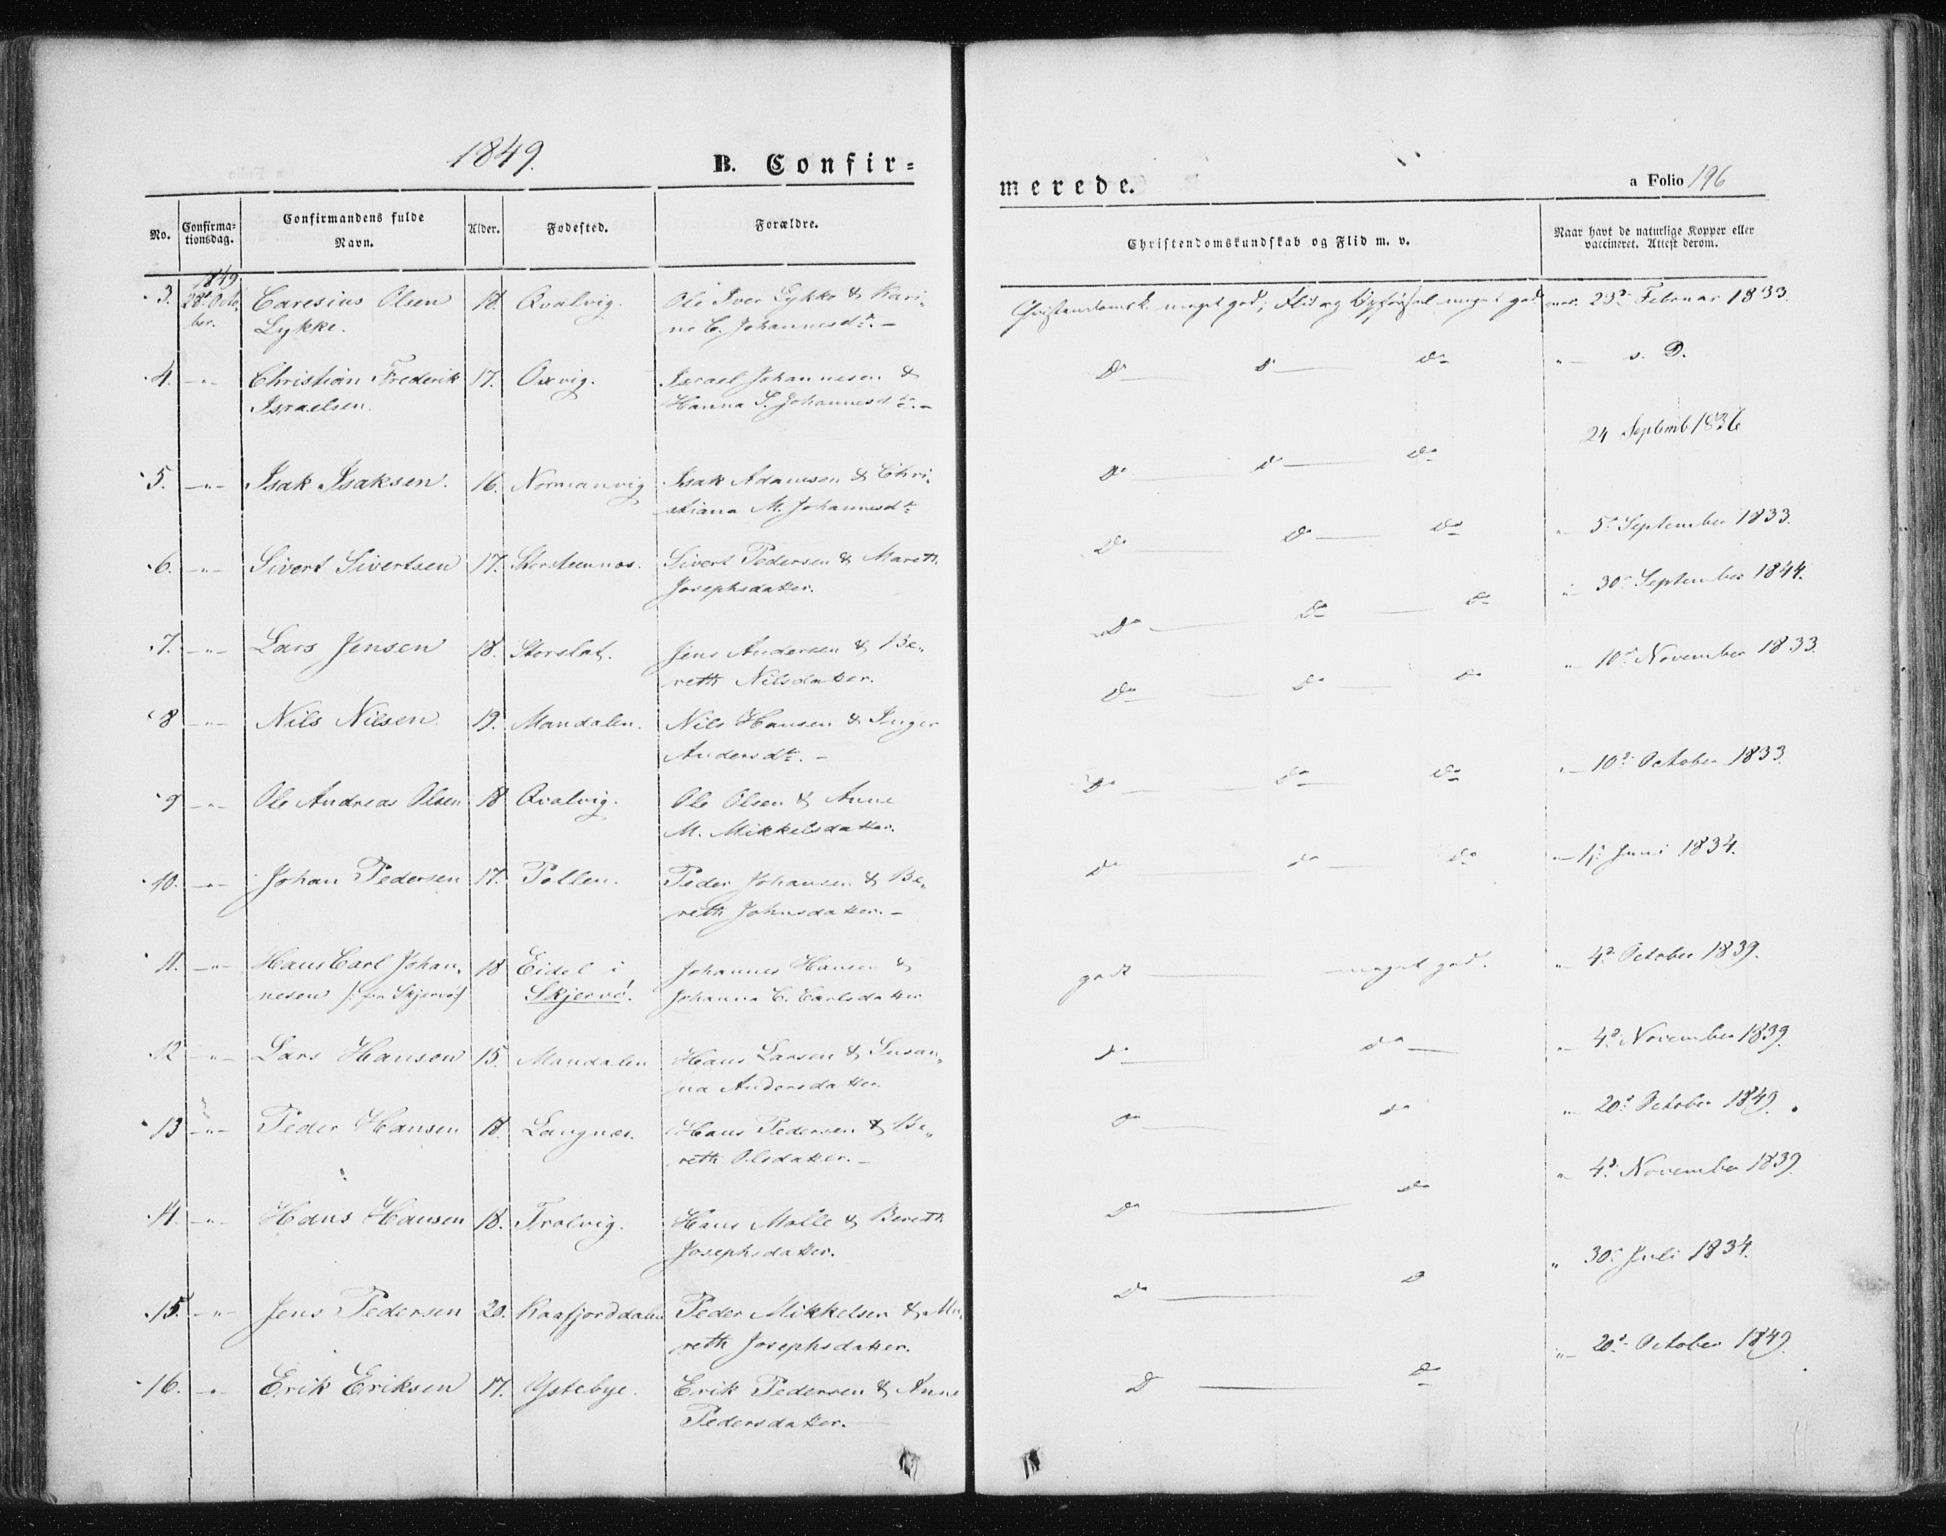 1849.
B. Confir=
No.
Confirma-
tionsdag.
Confirmandens fulde
Navn.
Alder.
Fødested.
Forældre.
1849
3. 28de Octo- Caresius Olsen 18. Qvalvig. Ole Iver Lykke & Kari-
ber. Lykke. ne C. Johannesdt. –
4. –"– Christian Frederik 17. Oxvig. Israel Johannesen &
Israelsen. Hanna S. Johannesdt. –
5. –"– Isak Isaksen. 16. Normanvig Isak Adamsen & Chri-
stiana M. Johannesdt.
6. –"– Sivert Sivertsen 17. Storsteennes. Sivert Pedersen & Mareth
Josephsdatter.
7. –"– Lars Jensen 18. Storslat. Jens Andersen & Be-
reth Nilsdatter.
8 –"– Nils Nilsen 19. Mandalen. Nils Hansen & Inger
Andersdt. –
9 –"– Ole Andreas Olsen 18 Qvalvig. Ole Olsen & Anne
M. Mikkelsdatter.
10. –"– Johan Pedersen 17. Pollen. Peder Johansen & Be-
reth Johnsdatter. –
11. –"– Hans Carl Johan- 18 Eidet i Johannes Hansen &
nesen /: fra Skjervø/ Skjervø. Johanna C. Carlsdatter
12 –"– Lars Hansen 15. Mandalen Hans Larsen & Susan-
na Andersdatter.
13 –"– Peder Hansen 18. Langnes. Hans Pedersen & Be-
reth Olsdatter. –
14. –"– Hans Hansen 18. Trolvig. Hans Malle & Bereth
Josephsdatter.
15. –"– Jens Pedersen 20. Kaafjorddalen Peder Mikkelsen & Ma-
reth Josephsdatter.
16. –"– Erik Eriksen 17. Ystebye. Erik Pedersen & Anne
Pedersdatter. –
merede.
a Folio 196
Christendomskundskab og Flid m. v.
Naar havt de naturlige Kopper eller
vaccineret. Attest derom.
Christendomsk. meget god; Flid og Opførsel meget god vac. 23de Februar 1833.
Do — do — do "— s. D.
24 Septemb 1836
Do — do — do
Do — do — do "– 5te September 1833.
Do — do — do "– 30te September 1844.
Do — do — do "– 10de November 1833.
Do — do — do "– 10de October 1833.
do do — do "– Juni 1834.
godt — meget god. " 4de October 1839.
do — do — "– 4de November 1839.
do — do "– 20de October 1849.
Do — do " 4de November 1839.
Do — D " 30te Juli 1834.
D — do "– 20de October 1849.